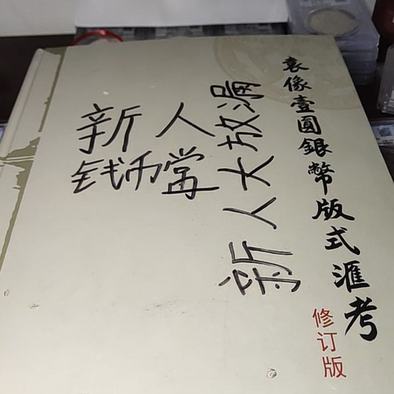 袁像壹圓銀幣版式滙考
修订版
新人
钱币堂
新人大放漏